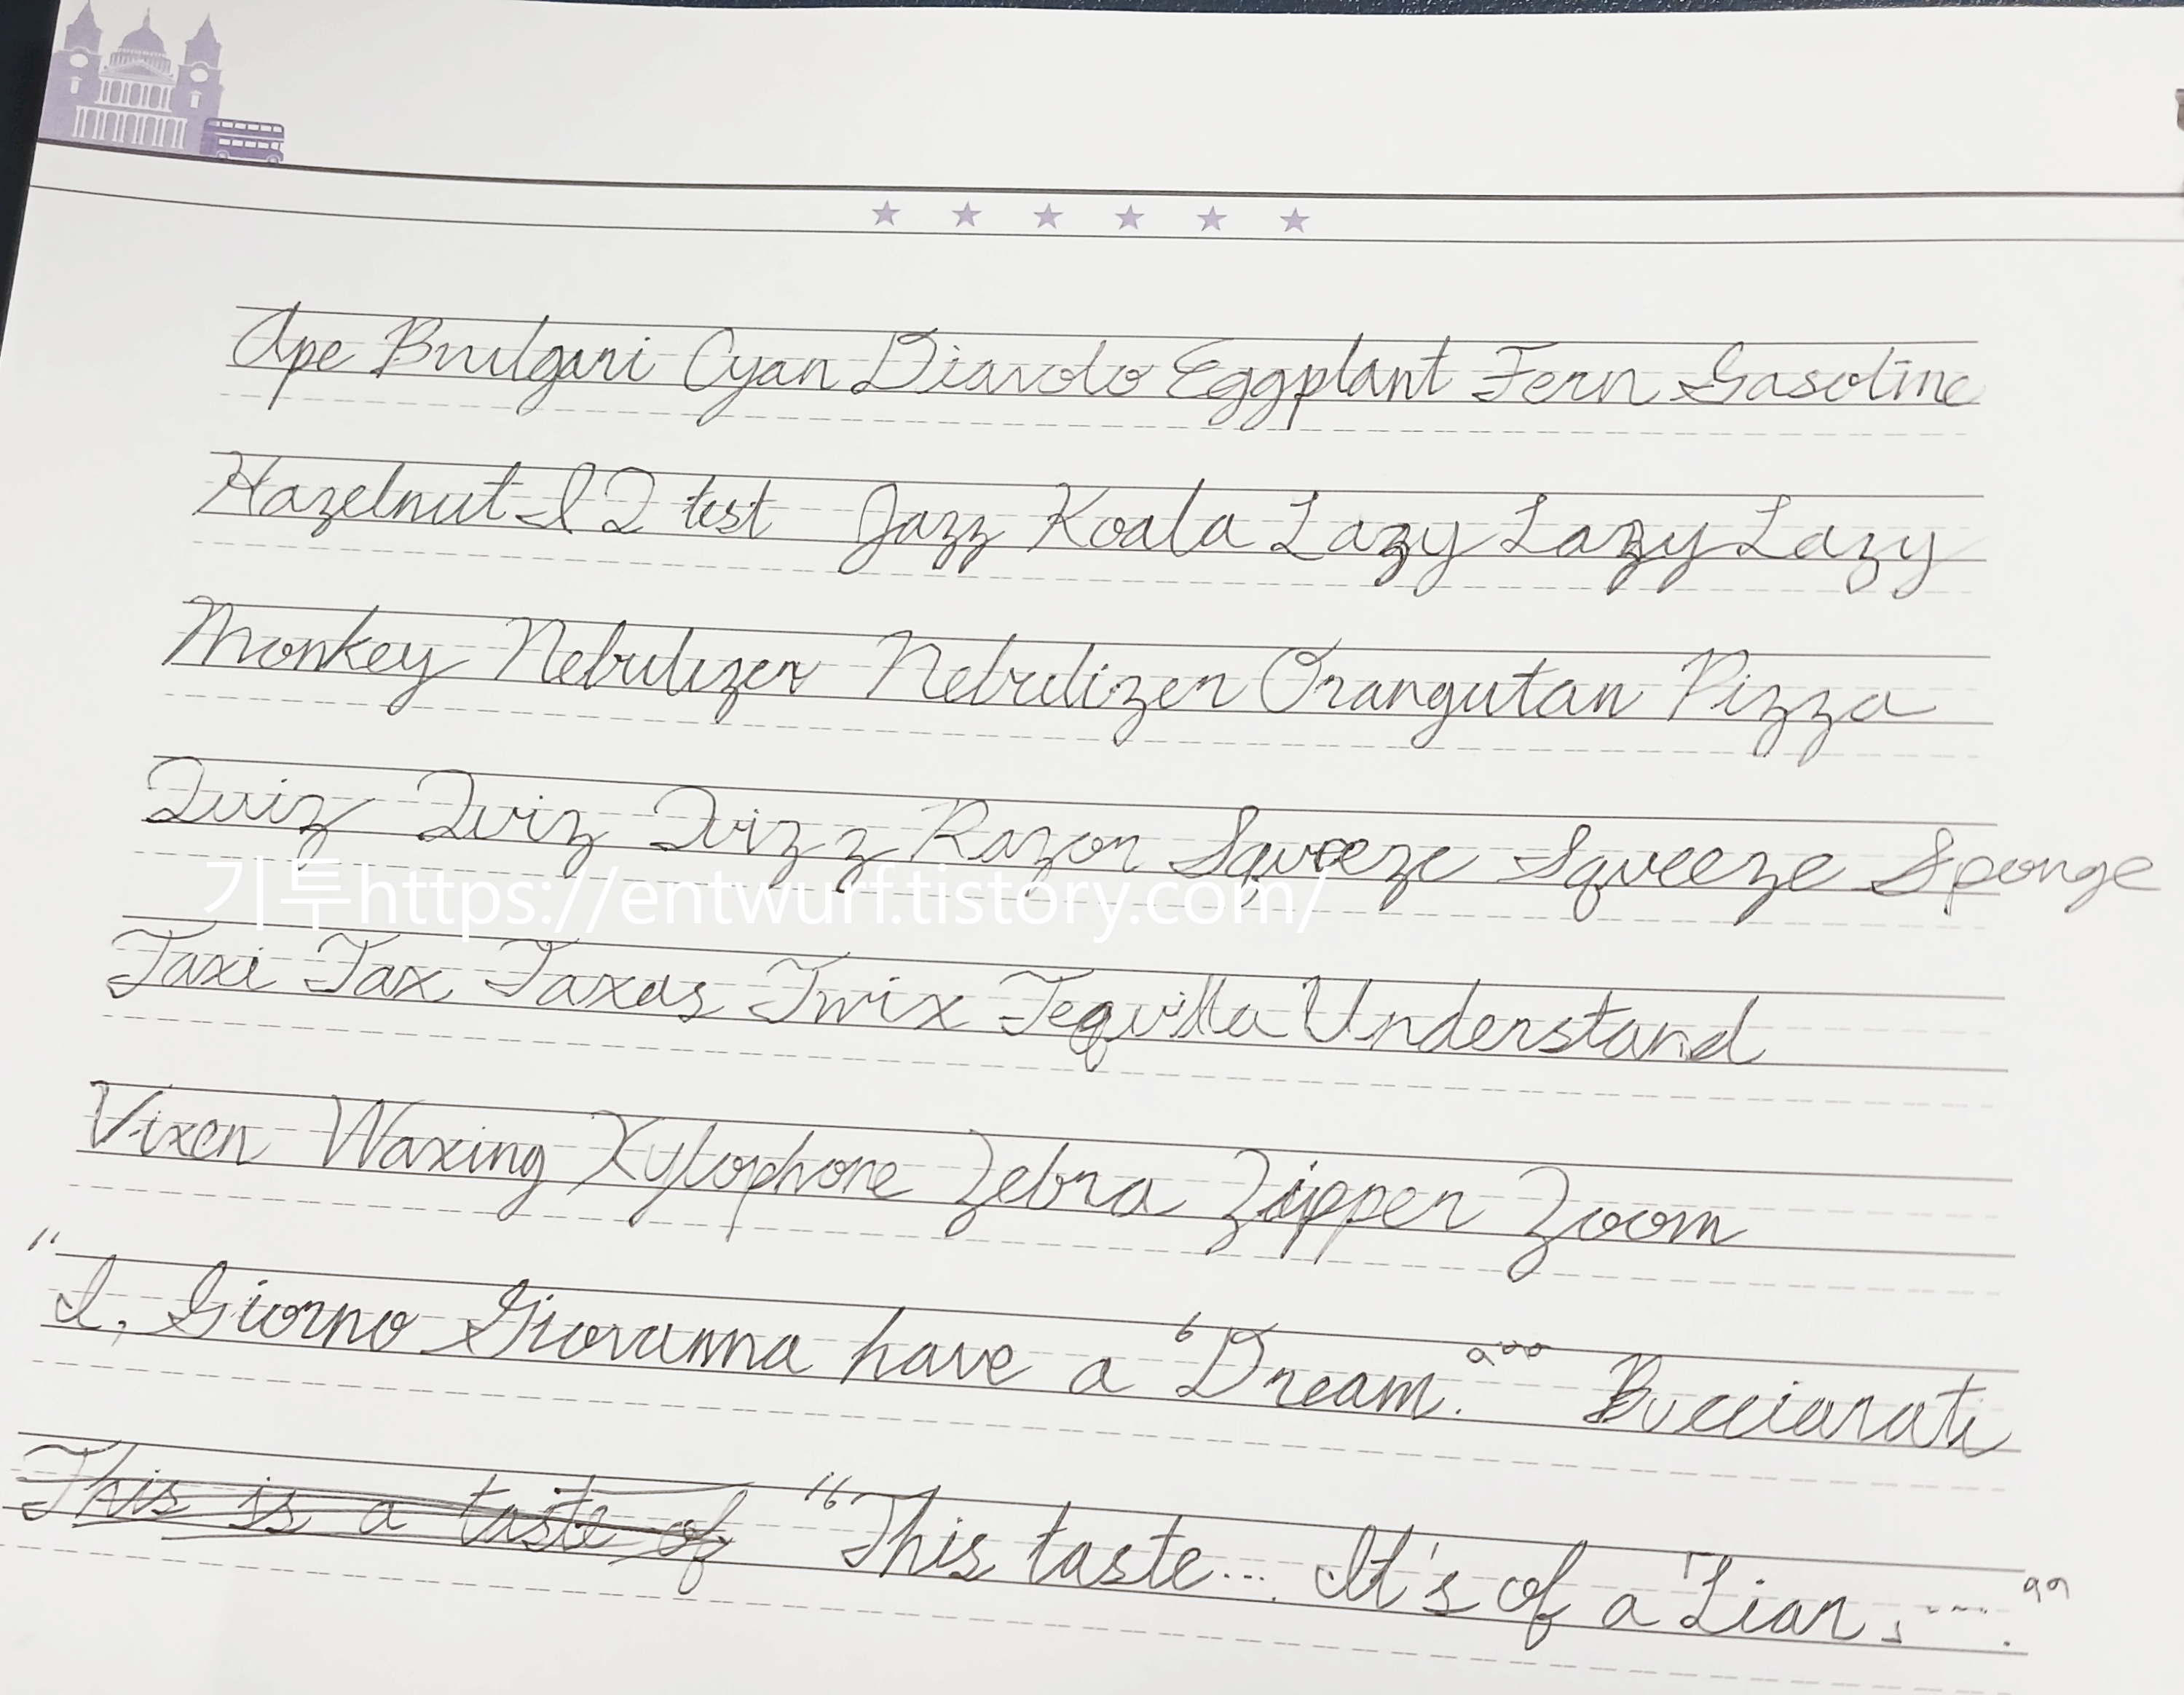 Ape Bvulgari Cyan Diavolo Eggplant Fern Gasoline
Hazelnut I Q test Jazz Koala Lazy Lazy Lazy
Monkey Nebulizer Nebulizer Orangutan Pizza
Quiz Quiz Quizz Razor Squeeze Squeeze Sponge
기투https://entwurf.tistory.com/
Taxi Tax Taxas Twix Tequilla Understand
Vixen Waxing Xylophone Zebra Zipper Zoom
"I, Giorno Giovanna have a 'Dream.''" Bucciarati
This is a taste of "This taste... It's of a 'Liar, ....."